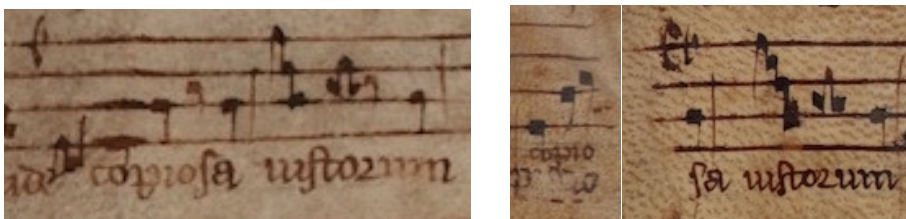 copiosa iustorum
copio
sa iustorum